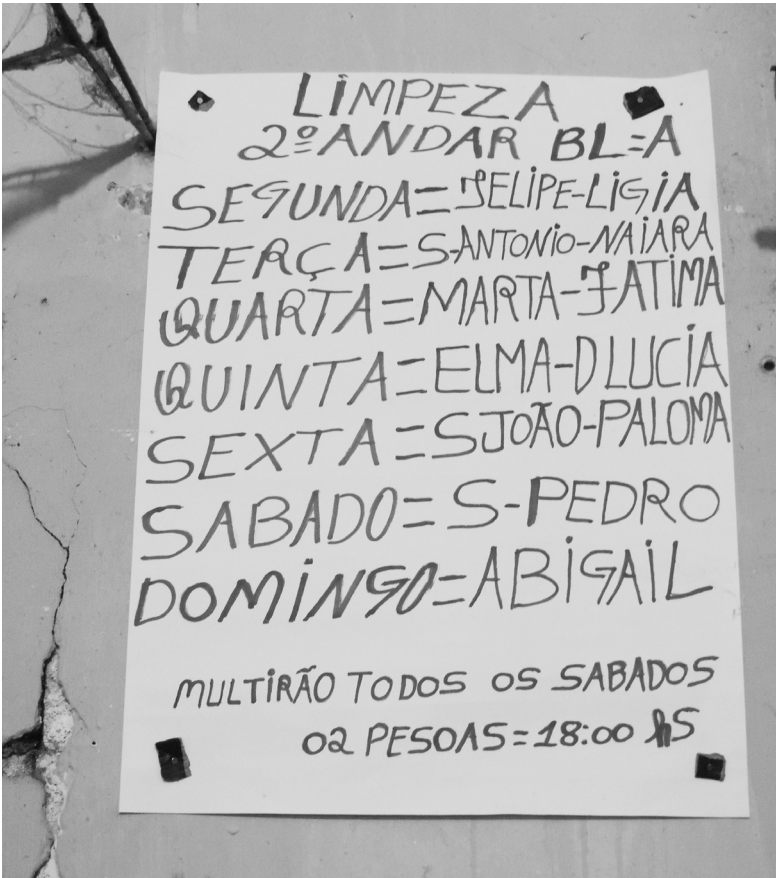 LIMPEZA
2º ANDAR BL=A
SEGUNDA=FELIPE-LIGIA
TERÇA=S-ANTONIO-NAIARA
QUARTA=MARTA-FATIMA
QUINTA=ELMA-D LUCIA
SEXTA=S JOÃO-PALOMA
SABADO=S-PEDRO
DOMINGO=ABIGAIL
MULTIRÃO TODOS OS SABADOS
02 PESOAS=18:00 hS